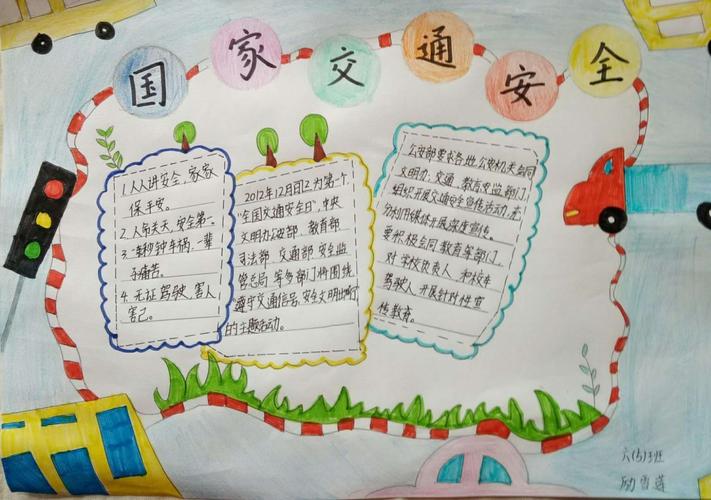 国家交通安全
1.人人讲安全,家家
保平安。
2.人命关天,安全第一。
3.一秒钟车祸,一辈
子痛苦。
4.无证驾驶,害人
害己。
2012年12月2日为第一个
"全国交通安全日",中央
文明办公安部、教育部
司法部 交通部 安全监
管总局 等多部门将围绕
"遵守交通信号,安全文明出行"
的主题活动。
公安部要求各地公安机关会同
文明办、交通、教育安监部门
组织开展交通安全宣传活动,充
分利用媒体开展深度宣传。
要积极会同教育等部门,
对学校负责人 和校车
驾驶人开展针对性宣
传教育。
六(5)班
励雪莲